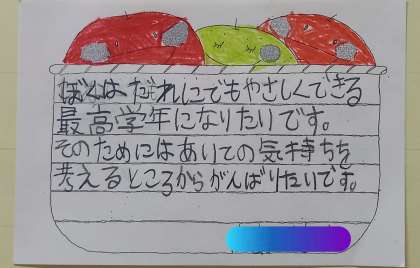 ぼくはだれにでもやさしくできる
最高学年になりたいです。
そのためにはあいての気持ちを
考えるところからがんばりたいです。